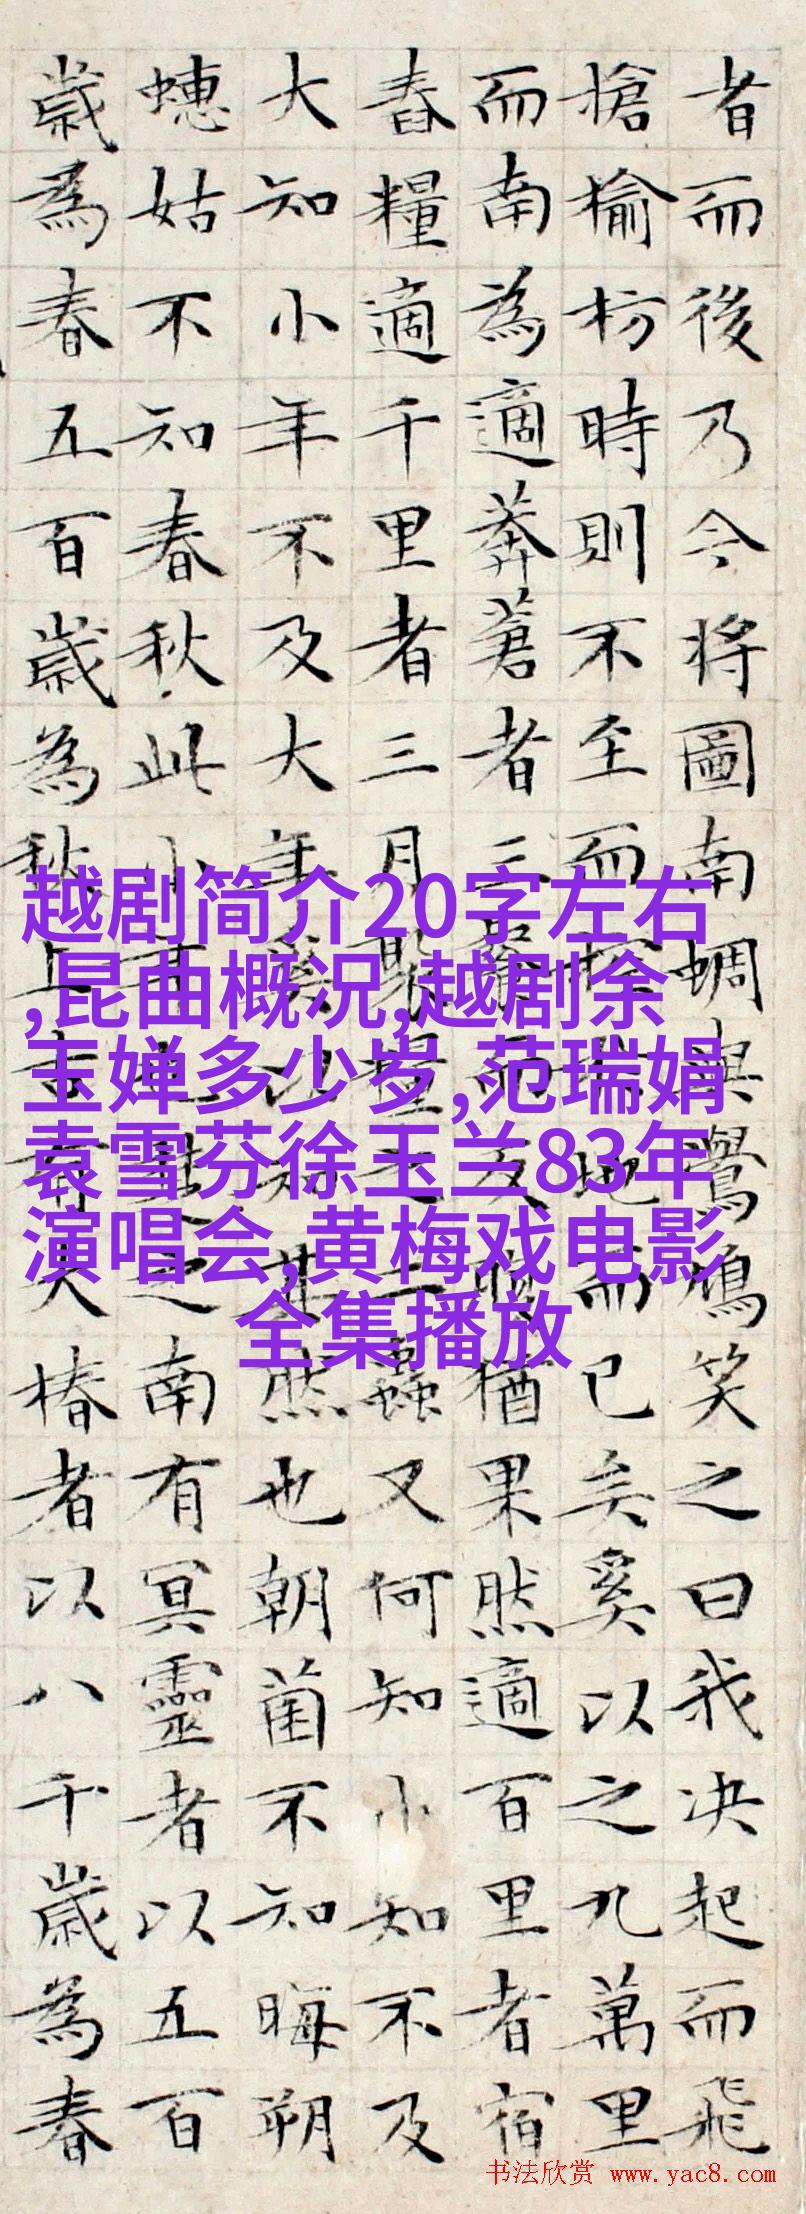 者而後乃今将圖南蜩與鷽鳩笑之曰我决起而飛
搶榆枋時則不至而控於地而已矣奚以之九萬里
而南為適莽蒼者三餐而反腹猶果然適百里者宿
舂糧適千里者三月聚糧之二蟲又何知小知不及
大知小年不及大年奚以知其然也朝菌不知晦朔
蟪姑不知春秋此小年也楚之南有冥靈者以五百
歲為春五百歲為秋上古有大椿者以八千歲為春
越剧简介20字左右
,昆曲概况,越剧余
玉婵多少岁,范瑞娟
袁雪芬徐玉兰83年
演唱会,黄梅戏电影
全集播放
书法欣赏 www.yac8.com